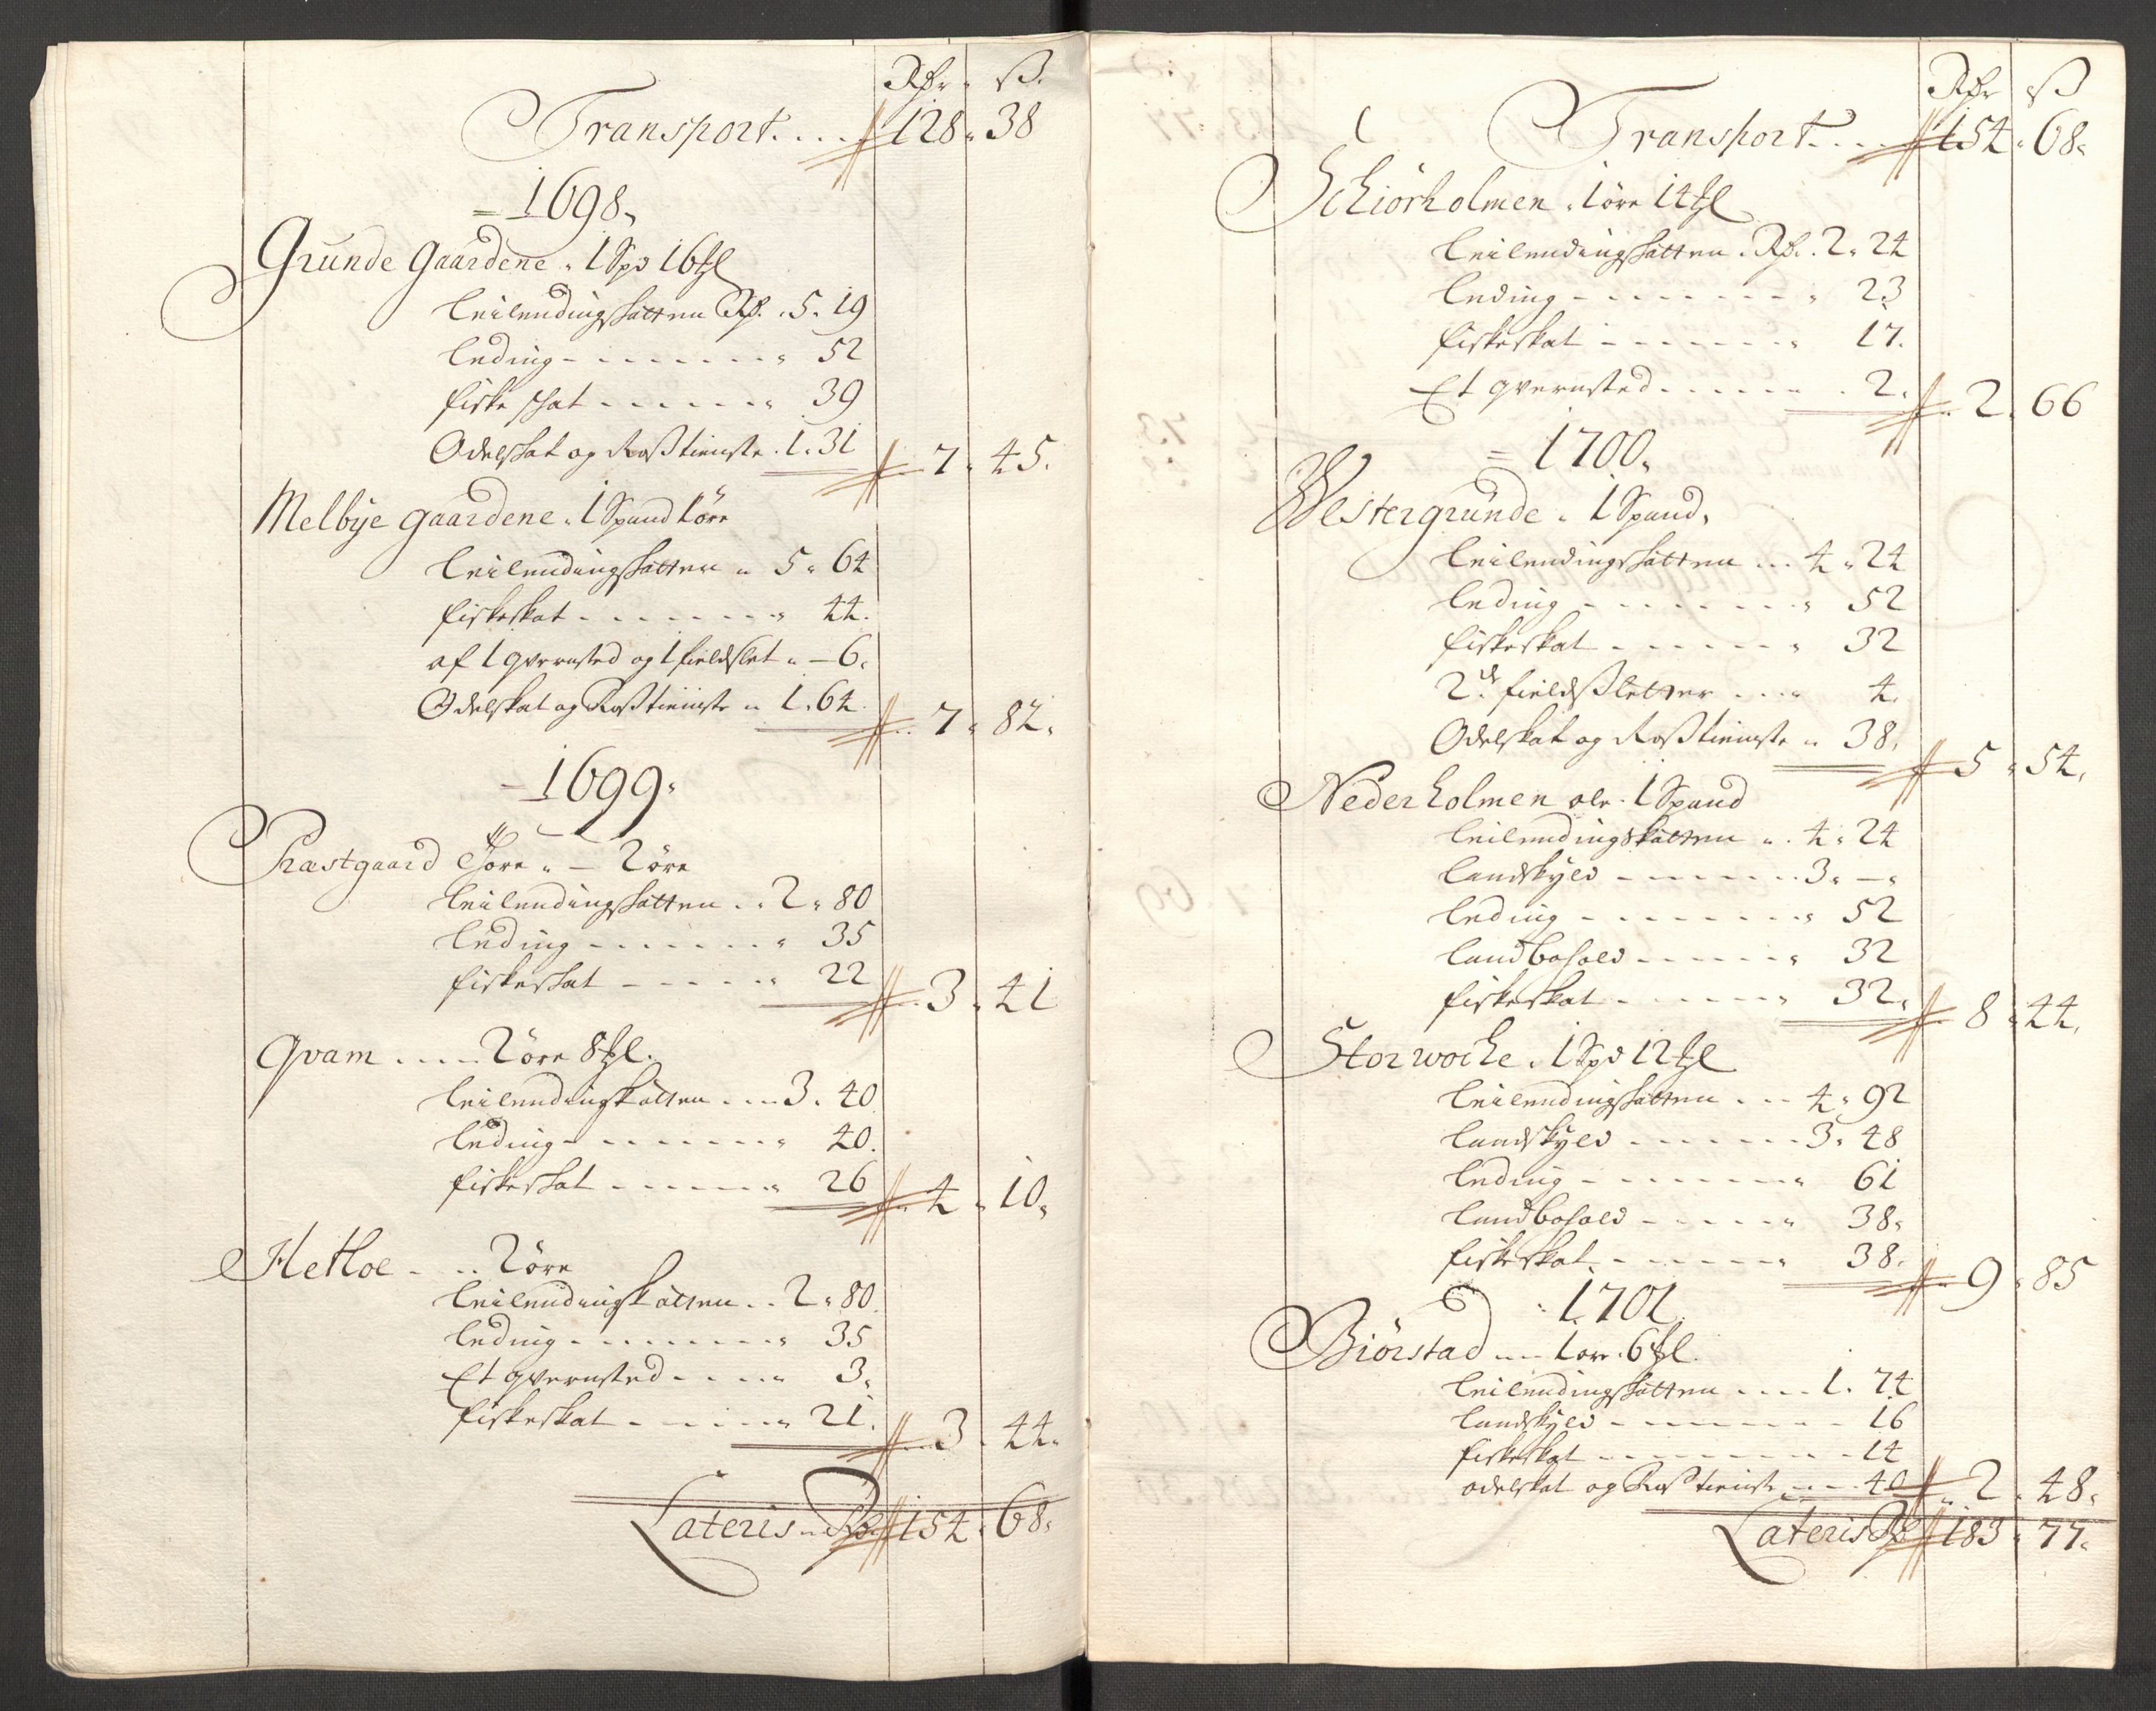 Rdr ß.
Transport . . . 128 . 38
1698,
Grunde Gaardene . 1 Spd 16 ℔l
Leilendingsskatten Rd. 5. 19
Leding - - - - - - - - 52
fiske skat - - - - - - 39
Odelskat og Rosstieniste . 1. 31 7. 45.
Melbye gaardene . 1 Spand 1 öre
Leilendingsskatten " 5. 64
fiskeskat - - - - - - - 44.
af 1 qvernsted og 1 fieldslet " - 6.
Odelskat og Rosstieniste " 1. 64. 7. 82.
1699.
Præstgaard Hore " - 2 öre
Leilendingsskatten . . 2. 80
Leding - - - - - - - 35
fiskeskat - - - - - 22 3. 41
Qvam . . . . 2 öre 8 ℔l.
Leilendingskatten . . . 3. 40
Leding - - - - - - - 40.
fiskeskat - - - - - - 26 4. 10.
Hetloe - . . 2 öre
Leilendingskatten . . 2. 80.
Leding - - - - - - - - 35
Et qvernsted - - - - 3.
fiskeskat - - - - - - 21. 3. 44.
Lateris Rd 154. 68.
Rdr ß
Transport . . . . 154. 68.
Schiörholmen . 1 öre 14 ℔l
Leilendingsskatten . Rd. . 2. 24
Leding - - - - - - - 23
fiskeskat - - - - - - - 17.
Et qvernsted - - - - - - 2. 2. 66
= 1700.
Westergrunde . 1 Spand.
Leilendingsskatten . . . 4. 24
Leding - - - - - - - - 52
fiskeskat - - - - - - 32
2de fieldsletter . . . . 4.
Odelskat og Rosstieniste " 38. 5. 54.
Nederholmen alr. 1 Spand
Leilendingskatten " . 4. 24
Landskyld - - - - - - - 3. -.
Leding - - - - - - - - 52
Landbohold - - - - - - 32
fiskeskat - - - - - - 32. 8. 44.
Storwoche . 1 Spd 12 ℔l
Leilendingsskatten . . . 4. 92
Landskyld - - - - - - - 3. 48
Leding - - - - - - - - 61
Landbohold - - - - - 38.
fiskeskat - - - - - - 38. 9. 85
1701.
Biörstad . . . 1 öre . 6 ℔l.
Leilendingsskatten . . . . 1. 74
Landskyld - - - - - - - - 16
fiskeskat - - - - - - - - 14
odelskat og Rosstieniste - - - 40 2. 48.
Lateris Rd 183. 77.